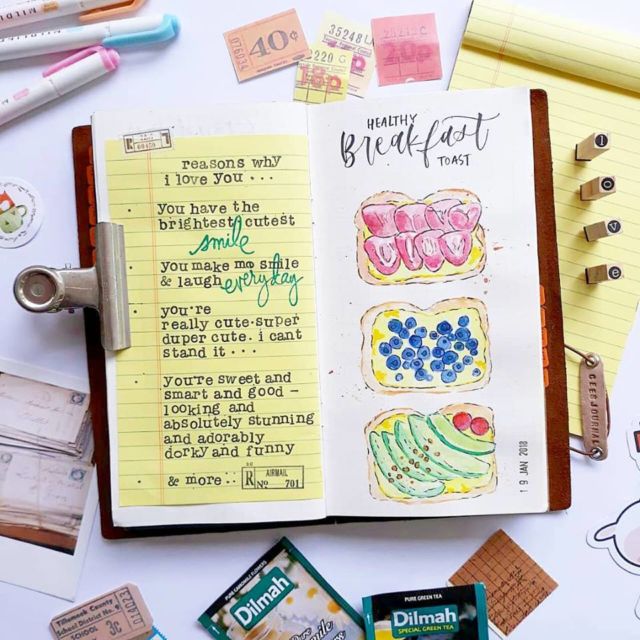 MILDLINER
40¢
076634
35248
2220 G
18p
20p
reasons why
i love you ...
you have the
brightest cutest
smile
you make me smile
& laugh everyday
you're
really cute. super
duper cute. i cant
stand it ...
you're sweet and
smart and good -
looking and
absolutely stunning
and adorably
dorky and funny
& more ..
R AIRMAIL
No 701
HEALTHY
Breakfast
TOAST
19 JAN 2018
l
o
v
e
CEESJOURNAL
Tillamook County
School District No. 9
SCHOOL 3C
PURE CAMOMILE FLOWERS
Dilmah
Pure
PURE GREEN TEA
Dilmah
SPECIAL GREEN TEA